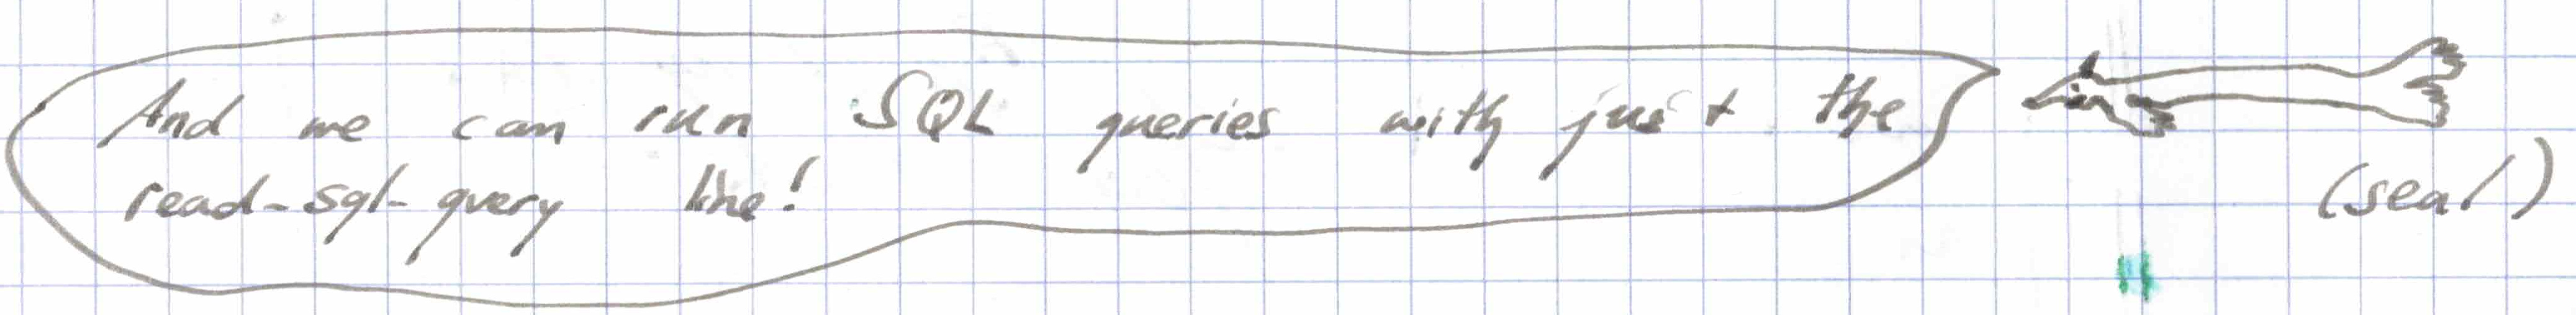 And we can run SQL queries with just the
read-sql-query line!
(seal)